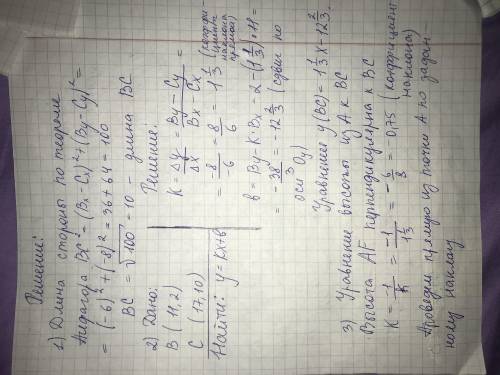 Решение:
1) Длина стороны по теореме
Пифагора BC² = (Bx - Cx)² + (By - Cy)² =
= (-6)² + (-8)² = 36 + 64 = 100
BC = √100 = 10 - длина BC
2) Дано:
B (11,2)
C (17,10)
Найти: y = kx+b
Решение:
K = Δy/Δx = (By - Cy)/(Bx - Cx) =
= -8/-6 = 8/6 = 1 1/3 (коэффициент наклона прямой)
b = By - K·Bx = 2 - (1 1/3)·11 =
= -38/3 = -12 2/3 (сдвиг по
оси Oy)
Уравнение y(BC) = 1 1/3 x - 12 2/3.
3) Уравнение высоты из A к BC
Высота AF перпендикулярна к BC
K = -1/k = -1/(1 1/3) = -6/8 = -0,75 (коэффициент
наклона)
Проведем прямую из точки A по задан
ному наклону